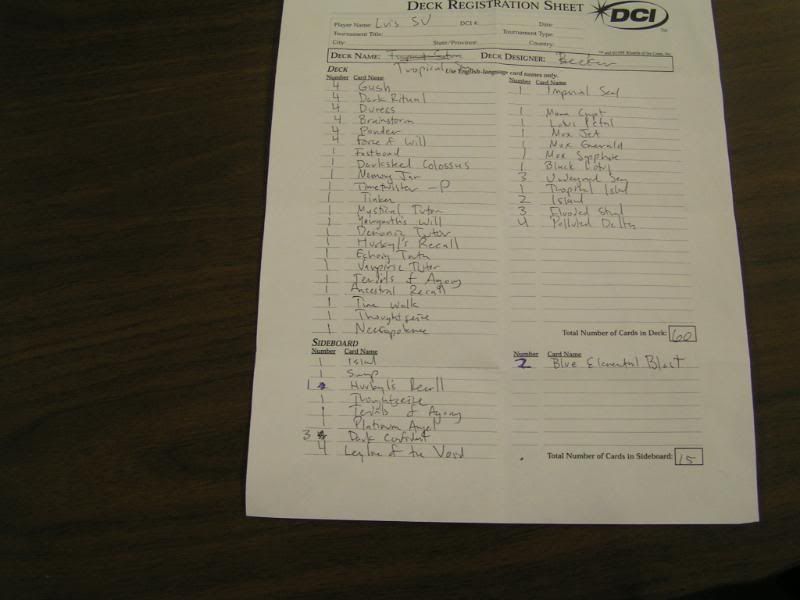 DECK REGISTRATION SHEET
DCI
Player Name: Luis SV DCI #: Date:
Tournament Title: Tournament Type:
City: State/Province: Country:
DECK NAME: DECK DESIGNER: Becker
Tropical
DECK
Use English-language card names only.
Number Card Name
4 Gush
4 Dark Ritual
4 Duress
4 Brainstorm
4 Ponder
4 Force of Will
1 Fastbond
1 Darksteel Colossus
1 Memory Jar
1 Timetwister -P
1 Tinker
1 Mystical Tutor
1 Yawgmoth's Will
1 Demonic Tutor
1 Hurkyl's Recall
1 Echoing Truth
1 Vampiric Tutor
1 Tendrils of Agony
1 Ancestral Recall
1 Time Walk
1 Thoughtseize
1 Necropotence
Number Card Name
1 Imperial Seal
1 Mana Crypt
1 Lotus Petal
1 Mox Jet
1 Mox Emerald
1 Mox Sapphire
1 Black Lotus
3 Underground Sea
1 Tropical Island
2 Island
3 Flooded Strand
4 Polluted Delta
Total Number of Cards in Deck: 60
SIDEBOARD
Number Card Name
1 Island
1 Swamp
1 Hurkyl's Recall
1 Thoughtseize
1 Tendrils of Agony
1 Platinum Angel
3 Dark Confidant
4 Leyline of the Void
Number Card Name
2 Blue Elemental Blast
Total Number of Cards in Sideboard: 15